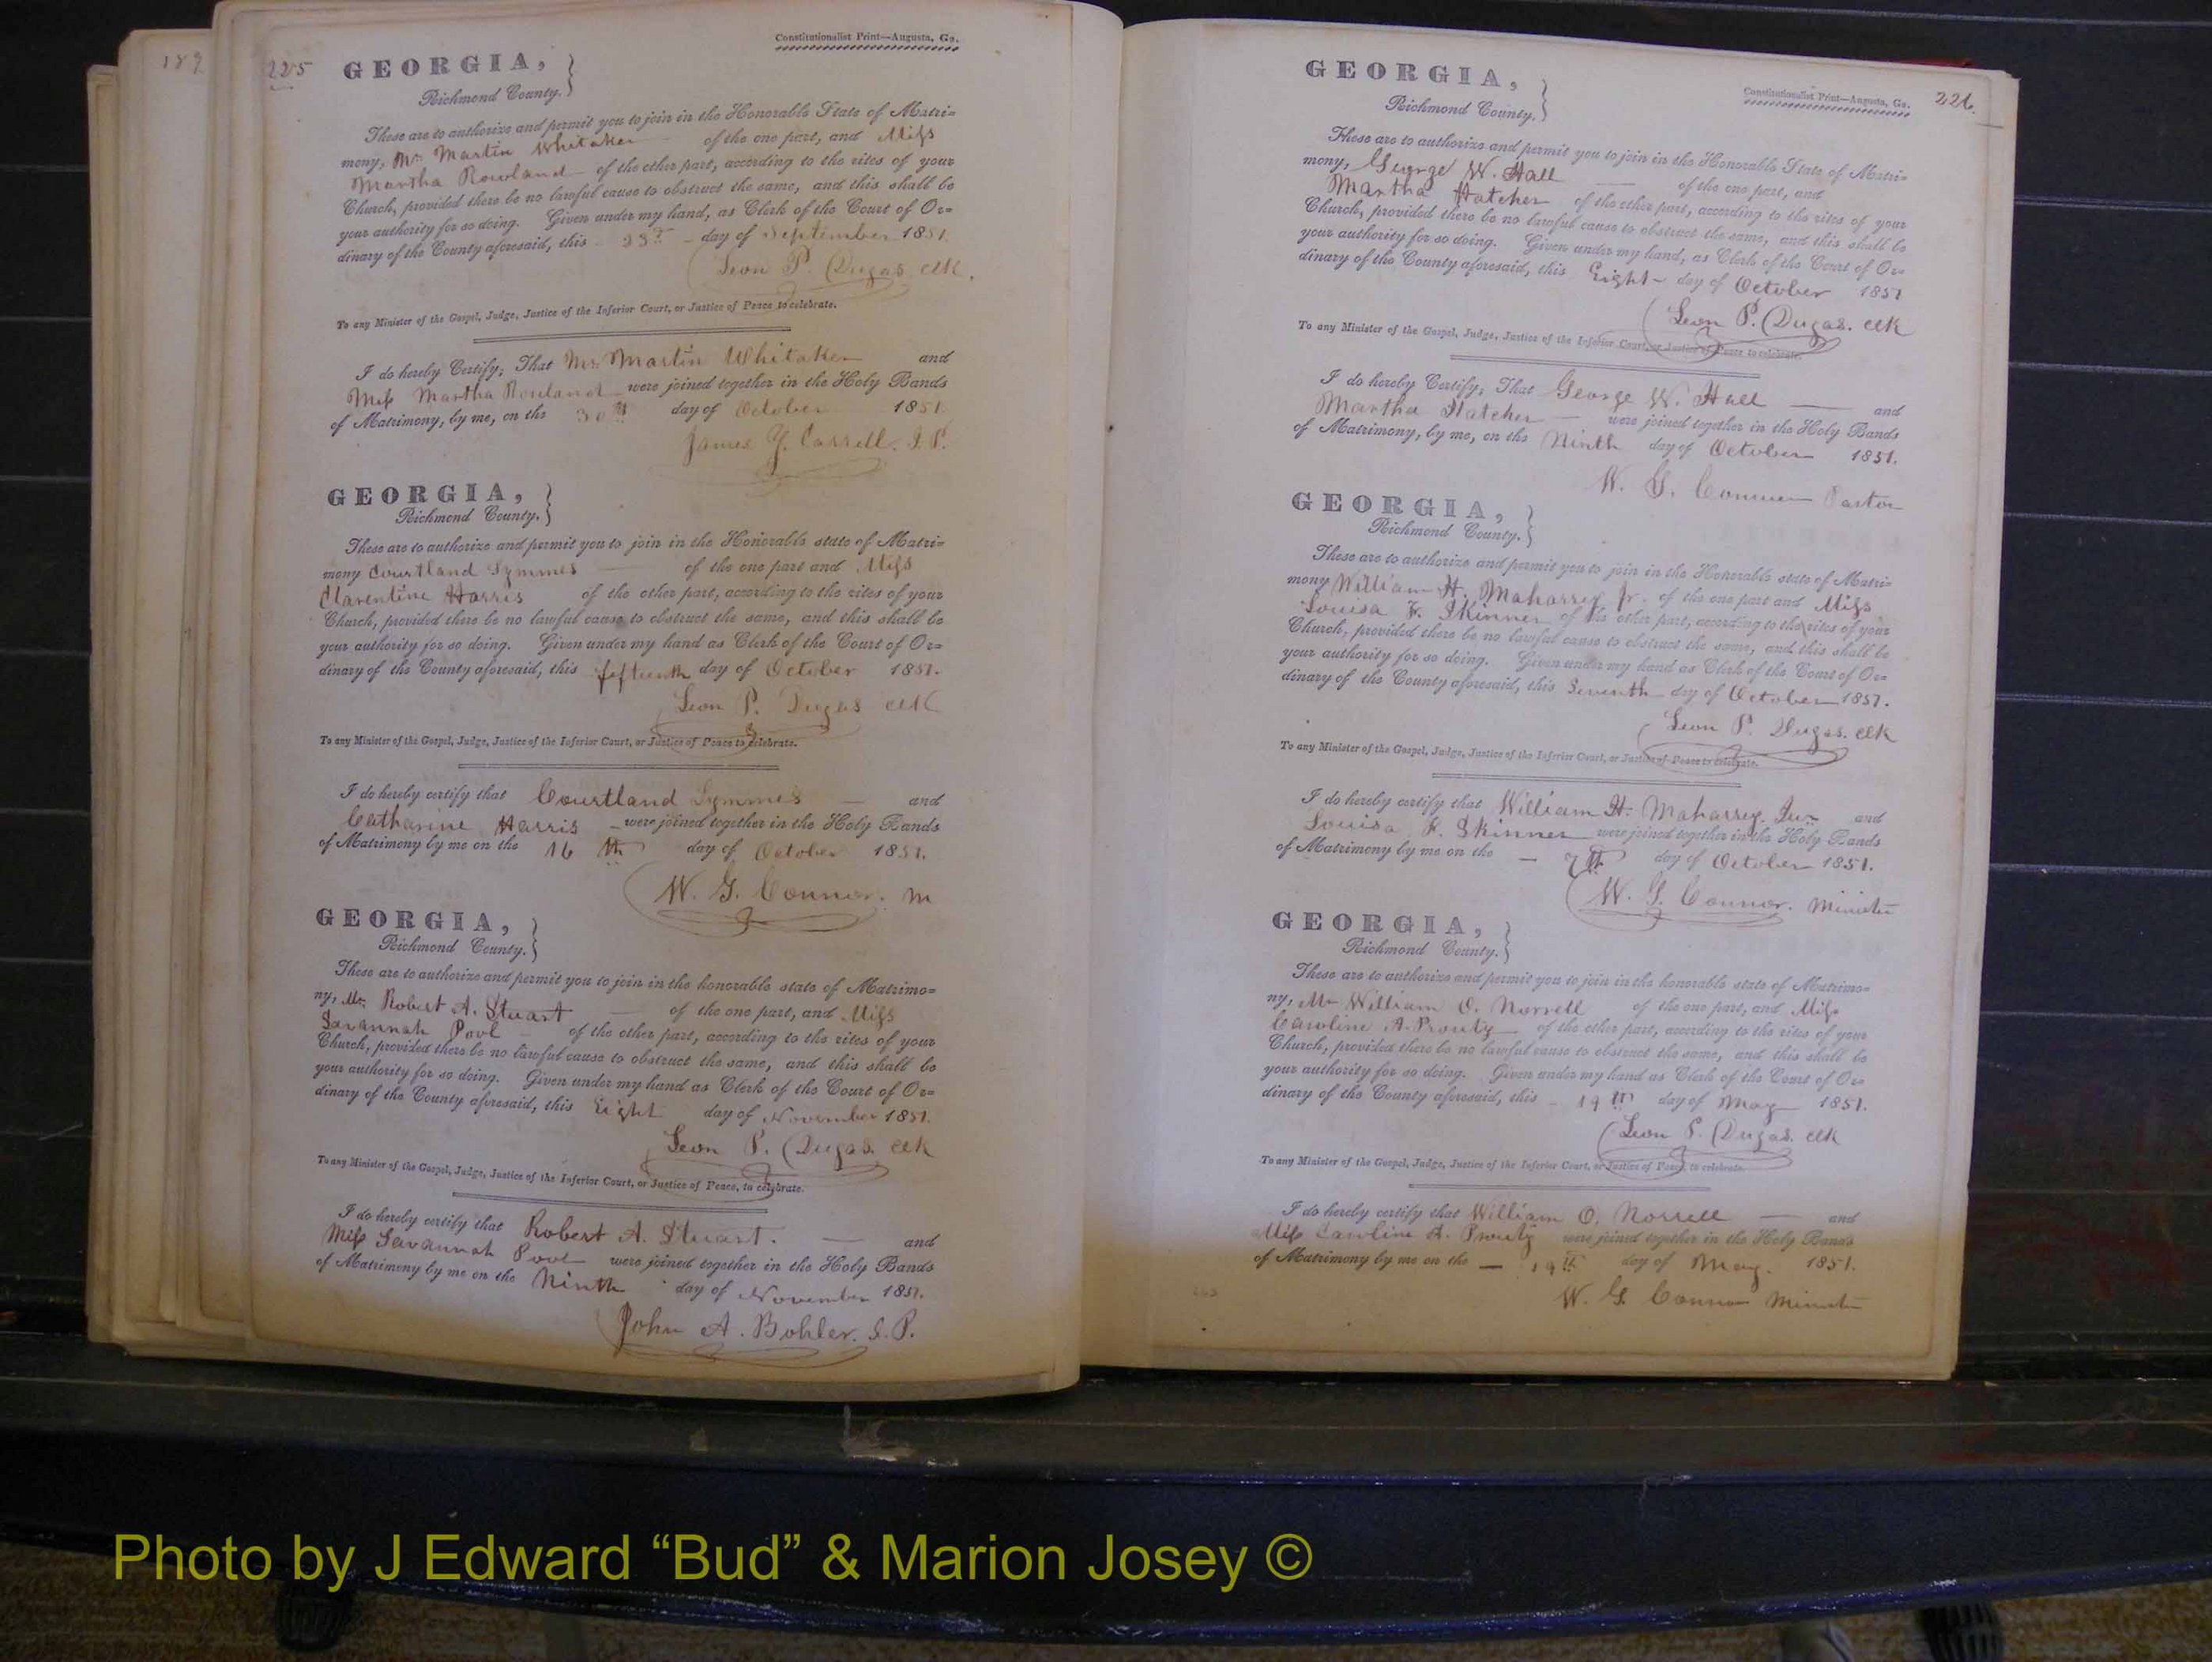 189
225
Constitutionalist Print—Augusta, Ga.
GEORGIA,
Richmond County.
These are to authorize and permit you to join in the Honorable State of Matri=
mony, Mr. Martin Whitaker of the one part, and Miss
Martha Rowland of the other part, according to the rites of your
Church, provided there be no lawful cause to obstruct the same, and this shall be
your authority for so doing. Given under my hand, as Clerk of the Court of Or=
dinary of the County aforesaid, this day of September 1851.
Leon P. Dugas. Clk.
To any Minister of the Gospel, Judge, Justice of the Inferior Court, or Justice of Peace to celebrate.
I do hereby Certify, That Mr. Martin Whitaker and
Miss Martha Rowland were joined together in the Holy Bands
of Matrimony, by me, on the 30th day of October 1851.
James Y. Carrell. J. P.
GEORGIA,
Richmond County.
These are to authorize and permit you to join in the Honorable state of Matri=
mony Courtland Symmes of the one part and Miss
Clarentine Harris of the other part, according to the rites of your
Church, provided there be no lawful cause to obstruct the same, and this shall be
your authority for so doing. Given under my hand as Clerk of the Court of Or=
dinary of the County aforesaid, this fifteenth day of October 1851.
Leon P. Dugas Clk
To any Minister of the Gospel, Judge, Justice of the Inferior Court, or Justice of Peace to celebrate.
I do hereby certify that Courtland Symmes and
Catharine Harris were joined together in the Holy Bands
of Matrimony by me on the 16th day of October 1851.
W. G. Connor. M
GEORGIA,
Richmond County.
These are to authorize and permit you to join in the honorable state of Matrimo=
ny, Mr. Robert A. Stuart of the one part, and Miss
Savannah Pool of the other part, according to the rites of your
Church, provided there be no lawful cause to obstruct the same, and this shall be
your authority for so doing. Given under my hand as Clerk of the Court of Or=
dinary of the County aforesaid, this Eight day of November 1851.
Leon P. Dugas. Clk
To any Minister of the Gospel, Judge, Justice of the Inferior Court, or Justice of Peace, to celebrate.
I do hereby certify that Robert A. Stuart. and
Miss Savannah Pool were joined together in the Holy Bands
of Matrimony by me on the Ninth day of November 1851.
John A. Bohler. J. P.
GEORGIA,
Richmond County.
Constitutionalist Print—Augusta, Ga.
226.
These are to authorize and permit you to join in the Honorable State of Matri=
mony, George W. Hall of the one part, and
Martha Hatcher of the other part, according to the rites of your
Church, provided there be no lawful cause to obstruct the same, and this shall be
your authority for so doing. Given under my hand, as Clerk of the Court of Or=
dinary of the County aforesaid, this Eight day of October 1851
Leon P. Dugas. Clk
To any Minister of the Gospel, Judge, Justice of the Inferior Court, or Justice of Peace to celebrate.
I do hereby Certify, That George W. Hall and
Martha Hatcher were joined together in the Holy Bands
of Matrimony, by me, on the Ninth day of October 1851.
W. G. Conner Pastor
GEORGIA,
Richmond County.
These are to authorize and permit you to join in the Honorable state of Matri=
mony William H. Maharrey Jr. of the one part and Miss
Louisa F. Skinner of the other part, according to the rites of your
Church, provided there be no lawful cause to obstruct the same, and this shall be
your authority for so doing. Given under my hand as Clerk of the Court of Or=
dinary of the County aforesaid, this Seventh day of October 1851.
Leon P. Dugas. Clk
To any Minister of the Gospel, Judge, Justice of the Inferior Court, or Justice of Peace to celebrate.
I do hereby certify that William H. Maharrey Jun and
Louisa F. Skinner were joined together in the Holy Bands
of Matrimony by me on the 7th day of October 1851.
W. G. Connor. Minister
GEORGIA,
Richmond County.
These are to authorize and permit you to join in the honorable state of Matrimo=
ny, Mr William O. Norrell of the one part, and Miss
Caroline A. Prouty of the other part, according to the rites of your
Church, provided there be no lawful cause to obstruct the same, and this shall be
your authority for so doing. Given under my hand as Clerk of the Court of Or=
dinary of the County aforesaid, this 19th day of May 1851.
Leon P. Dugas. Clk
To any Minister of the Gospel, Judge, Justice of the Inferior Court, or Justice of Peace, to celebrate.
I do hereby certify that William O. Norrell and
Miss Caroline A. Prouty were joined together in the Holy Bands
of Matrimony by me on the 19th day of May. 1851.
W. G. Connor Minister
Photo by J Edward “Bud” & Marion Josey ©